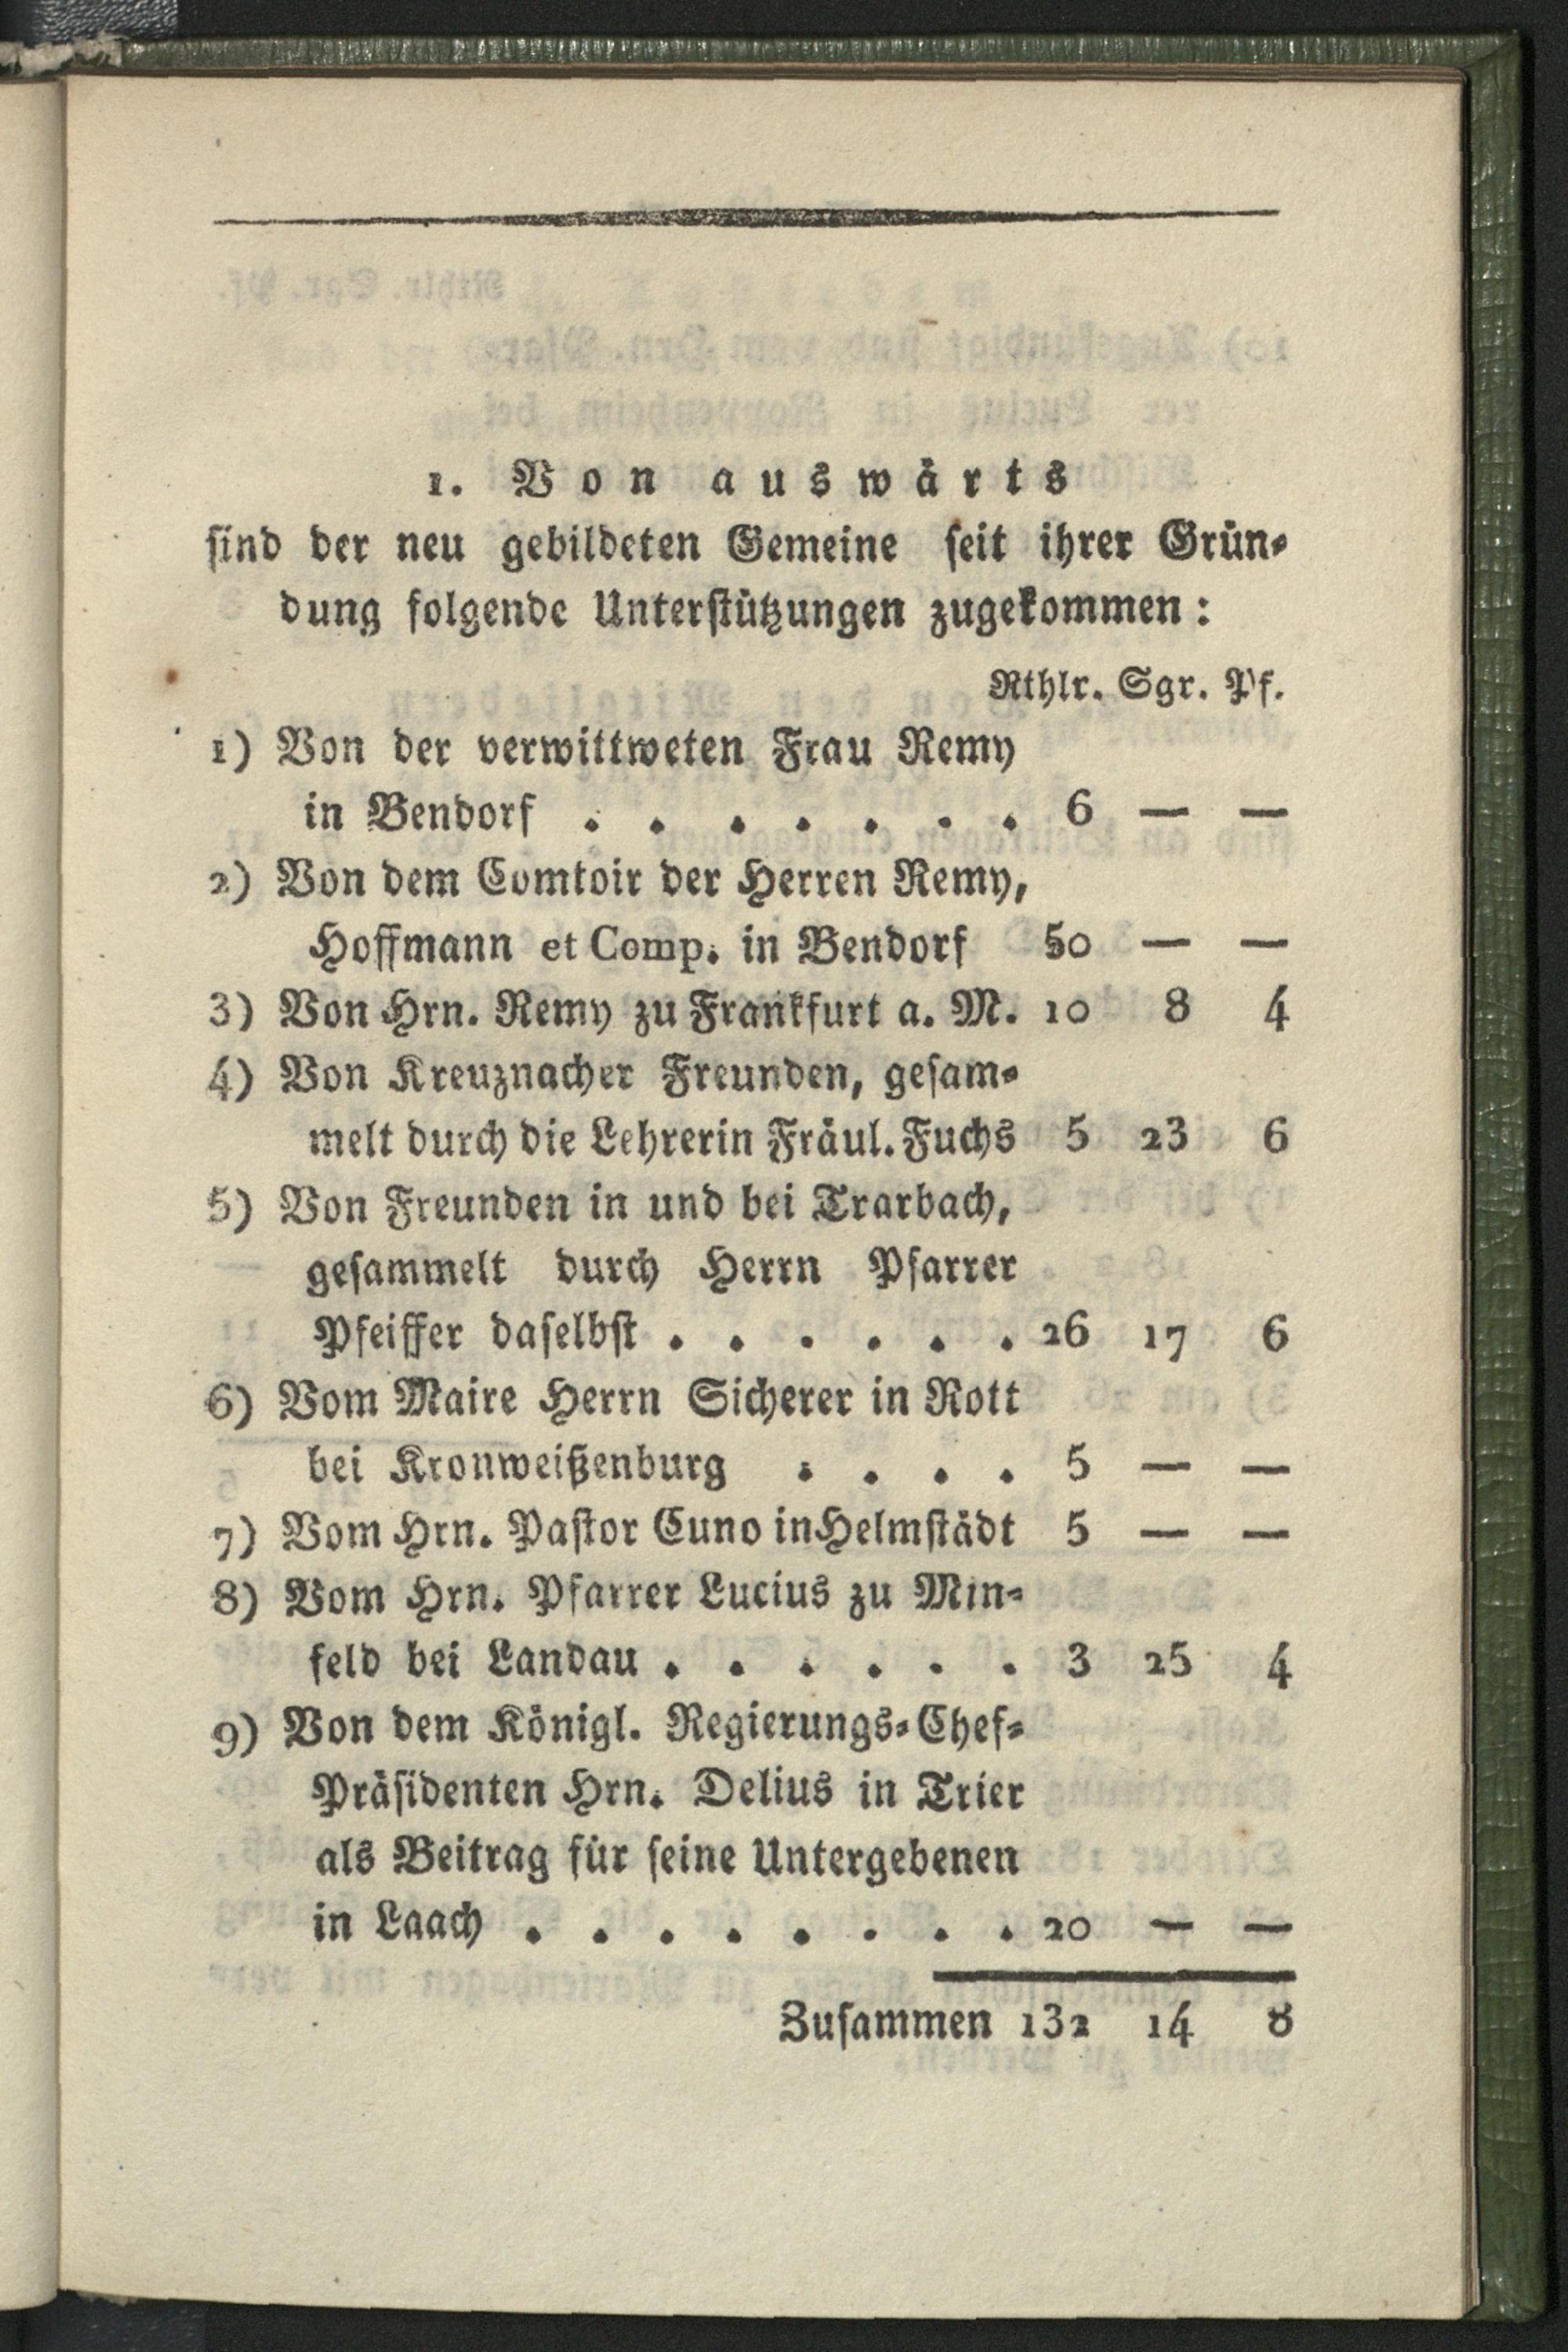 1. Von auswärts
sind der neu gebildeten Gemeine seit ihrer Grün-
dung folgende Unterstützungen zugekommen:
Rthlr. Sgr. Pf.
1) Von der verwittweten Frau Remy
in Bendorf . . . . . . . 6 — —
2) Von dem Comtoir der Herren Remy,
Hoffmann et Comp. in Bendorf 50 — —
3) Von Hrn. Remy zu Frankfurt a. M. 10 8 4
4) Von Kreuznacher Freunden, gesam-
melt durch die Lehrerin Fräul. Fuchs 5 23 6
5) Von Freunden in und bei Trarbach,
gesammelt durch Herrn Pfarrer
Pfeiffer daselbst . . . . . . 26 17 6
6) Vom Maire Herrn Sicherer in Rott
bei Kronweißenburg . . . . 5 — —
7) Vom Hrn. Pastor Cuno in Helmstädt 5 — —
8) Vom Hrn. Pfarrer Lucius zu Min-
feld bei Landau . . . . . . 3 25 4
9) Von dem Königl. Regierungs-Chef-
Präsidenten Hrn. Delius in Trier
als Beitrag für seine Untergebenen
in Laach . . . . . . . . 20 — —
Zusammen 132 14 8